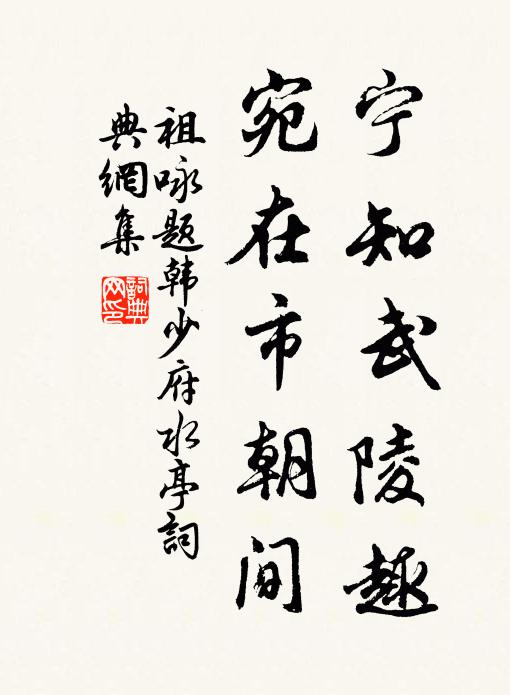 宁知武陵趣
宛在市朝间
祖咏题韩少府水亭詞
典網集
詞典
网印